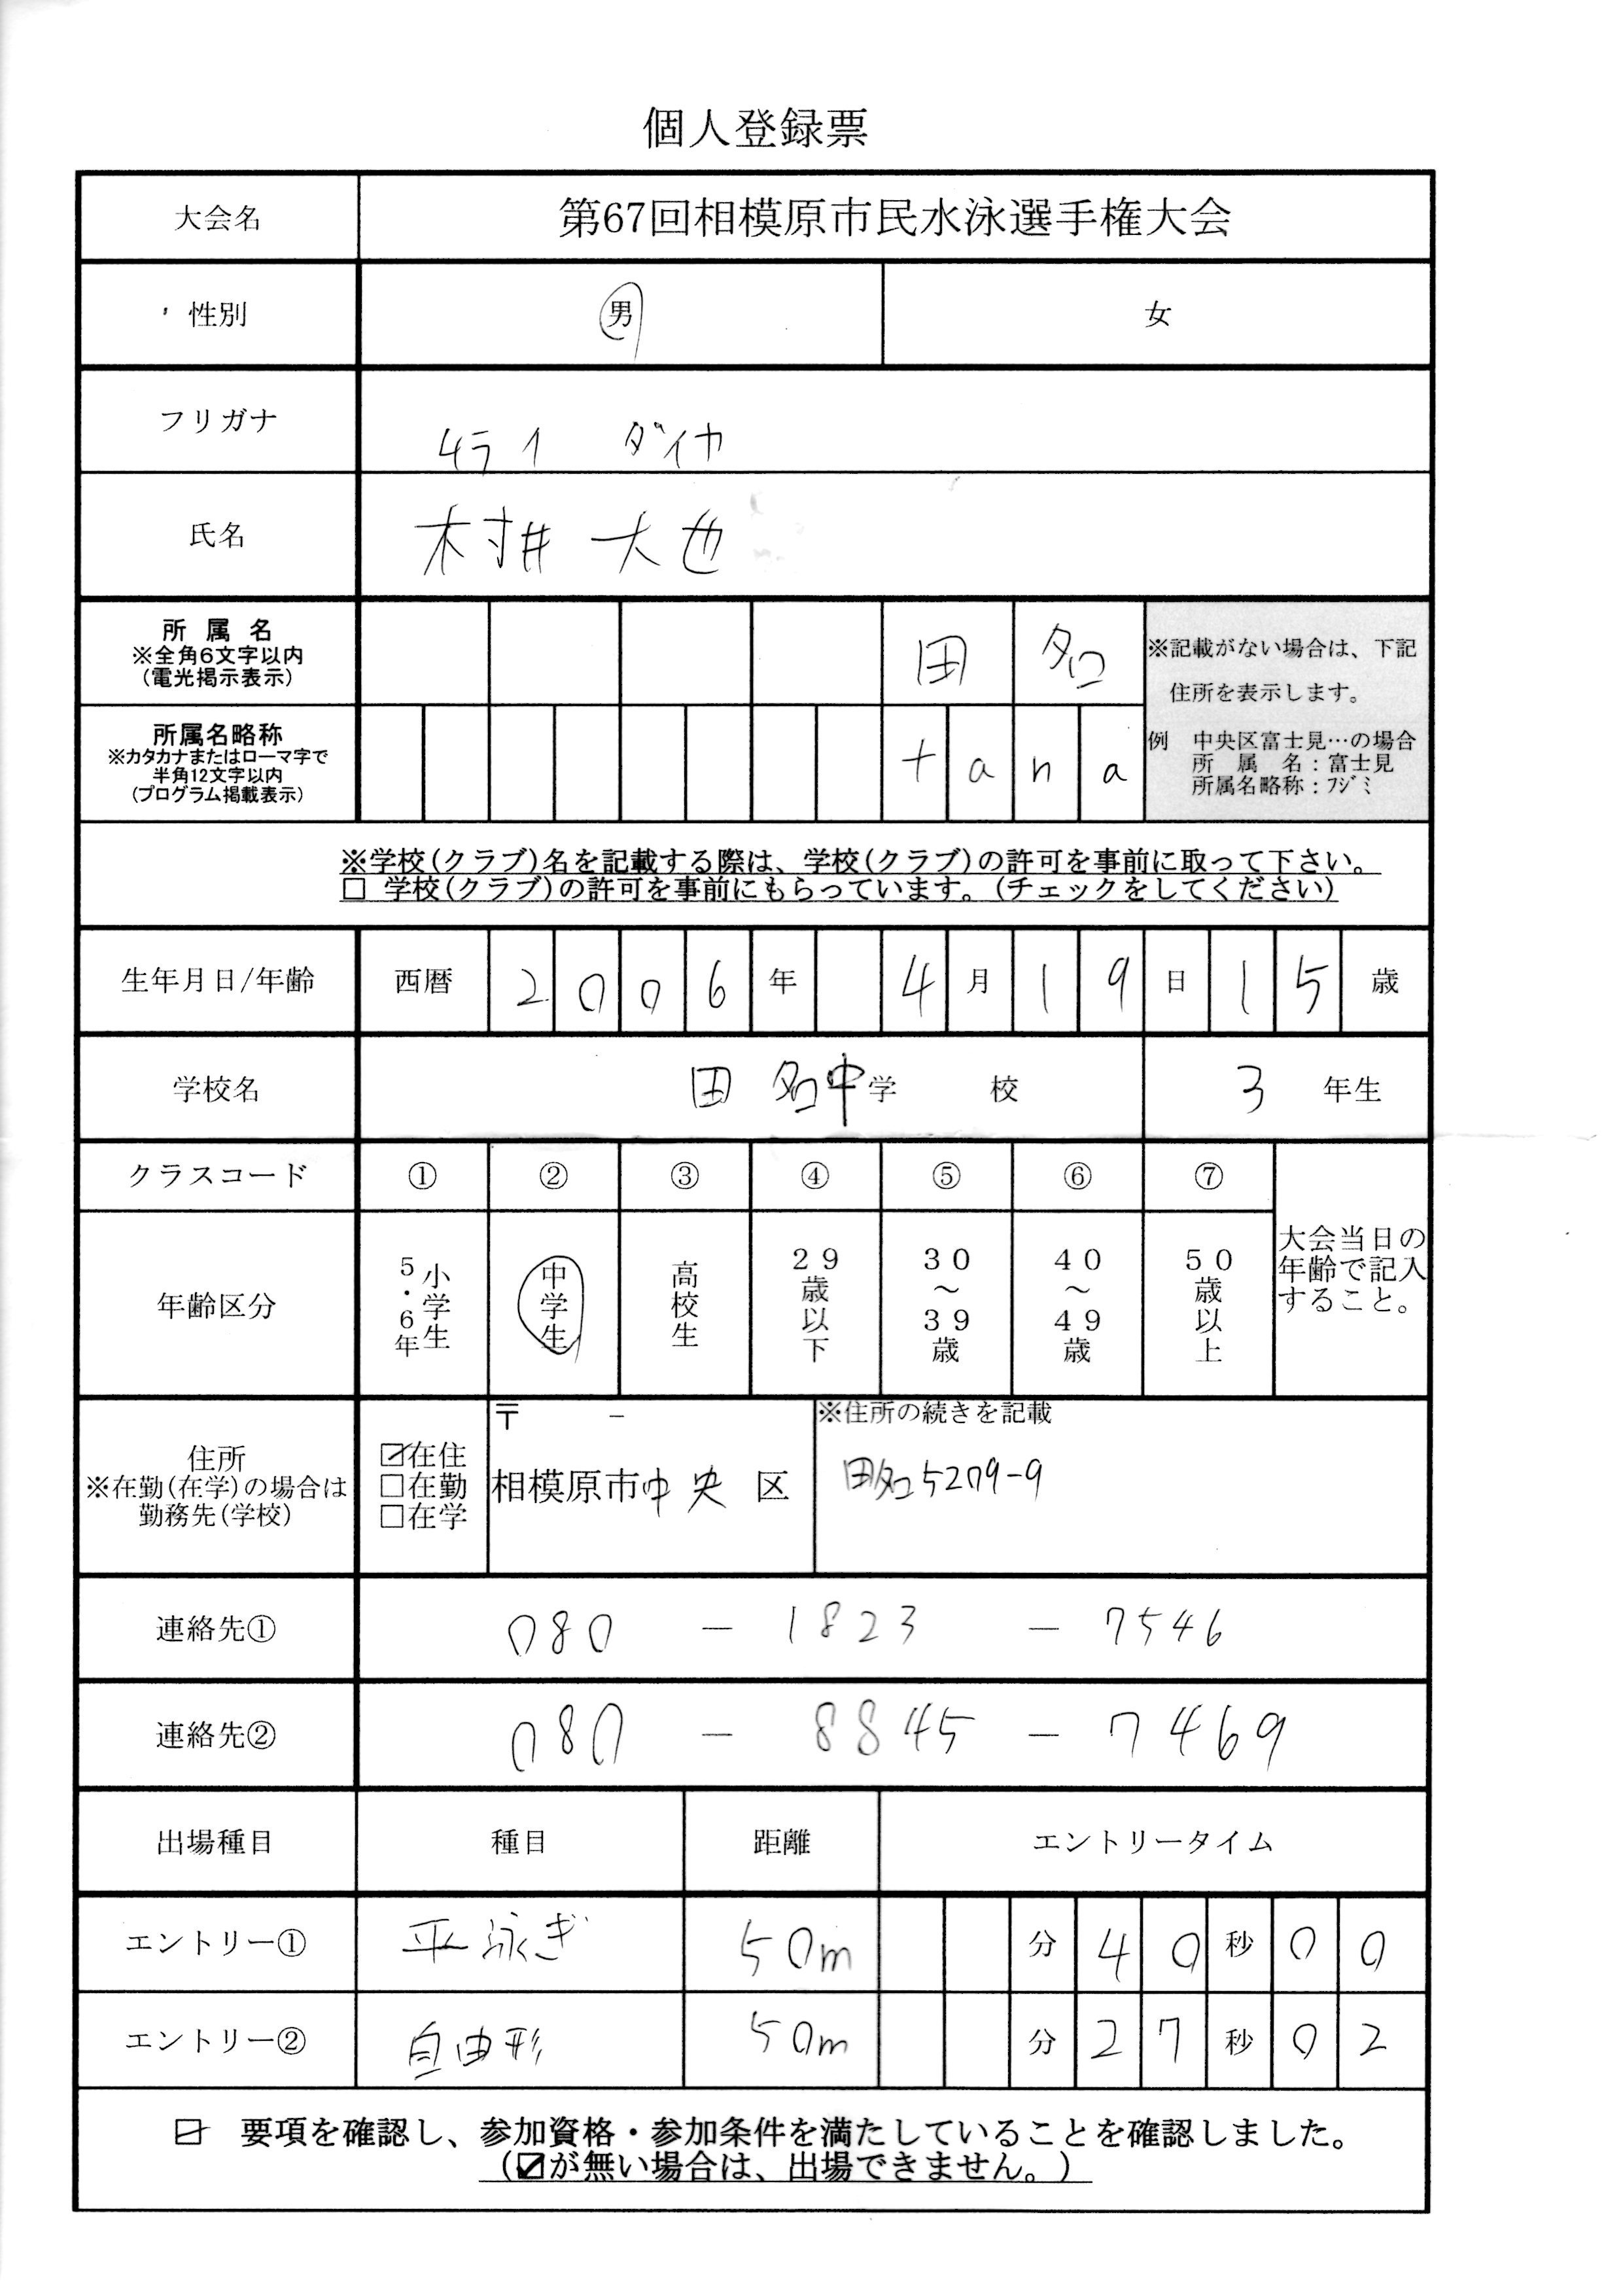 個人登録票
大会名 第67回相模原市民水泳選手権大会
性別 男 女
フリガナ ムライ ダイヤ
氏名 村井 大也
所属名 ※全角6文字以内 (電光掲示表示) 田 名
※記載がない場合は、下記
住所を表示します。
例 中央区富士見…の場合
所属名:富士見
所属名略称:ﾌｼﾞﾐ
所属名略称 ※カタカナまたはローマ字で 半角12文字以内 (プログラム掲載表示) t a n a
※学校(クラブ)名を記載する際は、学校(クラブ)の許可を事前に取って下さい。
□ 学校(クラブ)の許可を事前にもらっています。(チェックをしてください)
生年月日/年齢 西暦 2006年 4月19日 15歳
学校名 田名中学校 3年生
クラスコード ① ② ③ ④ ⑤ ⑥ ⑦
年齢区分 小学生5・6年 中学生 高校生 29歳以下 30~39歳 40~49歳 50歳以上
大会当日の
年齢で記入
すること。
住所
※在勤(在学)の場合は
勤務先(学校)
☑在住
□在勤
□在学
〒 -
相模原市中央区
※住所の続きを記載
田名5279-9
連絡先① 080 - 1823 - 7546
連絡先② 080 - 8845 - 7469
出場種目 種目 距離 エントリータイム
エントリー① 平泳ぎ 50m 分40秒00
エントリー② 自由形 50m 分27秒02
☑ 要項を確認し、参加資格・参加条件を満たしていることを確認しました。
(☑が無い場合は、出場できません。)